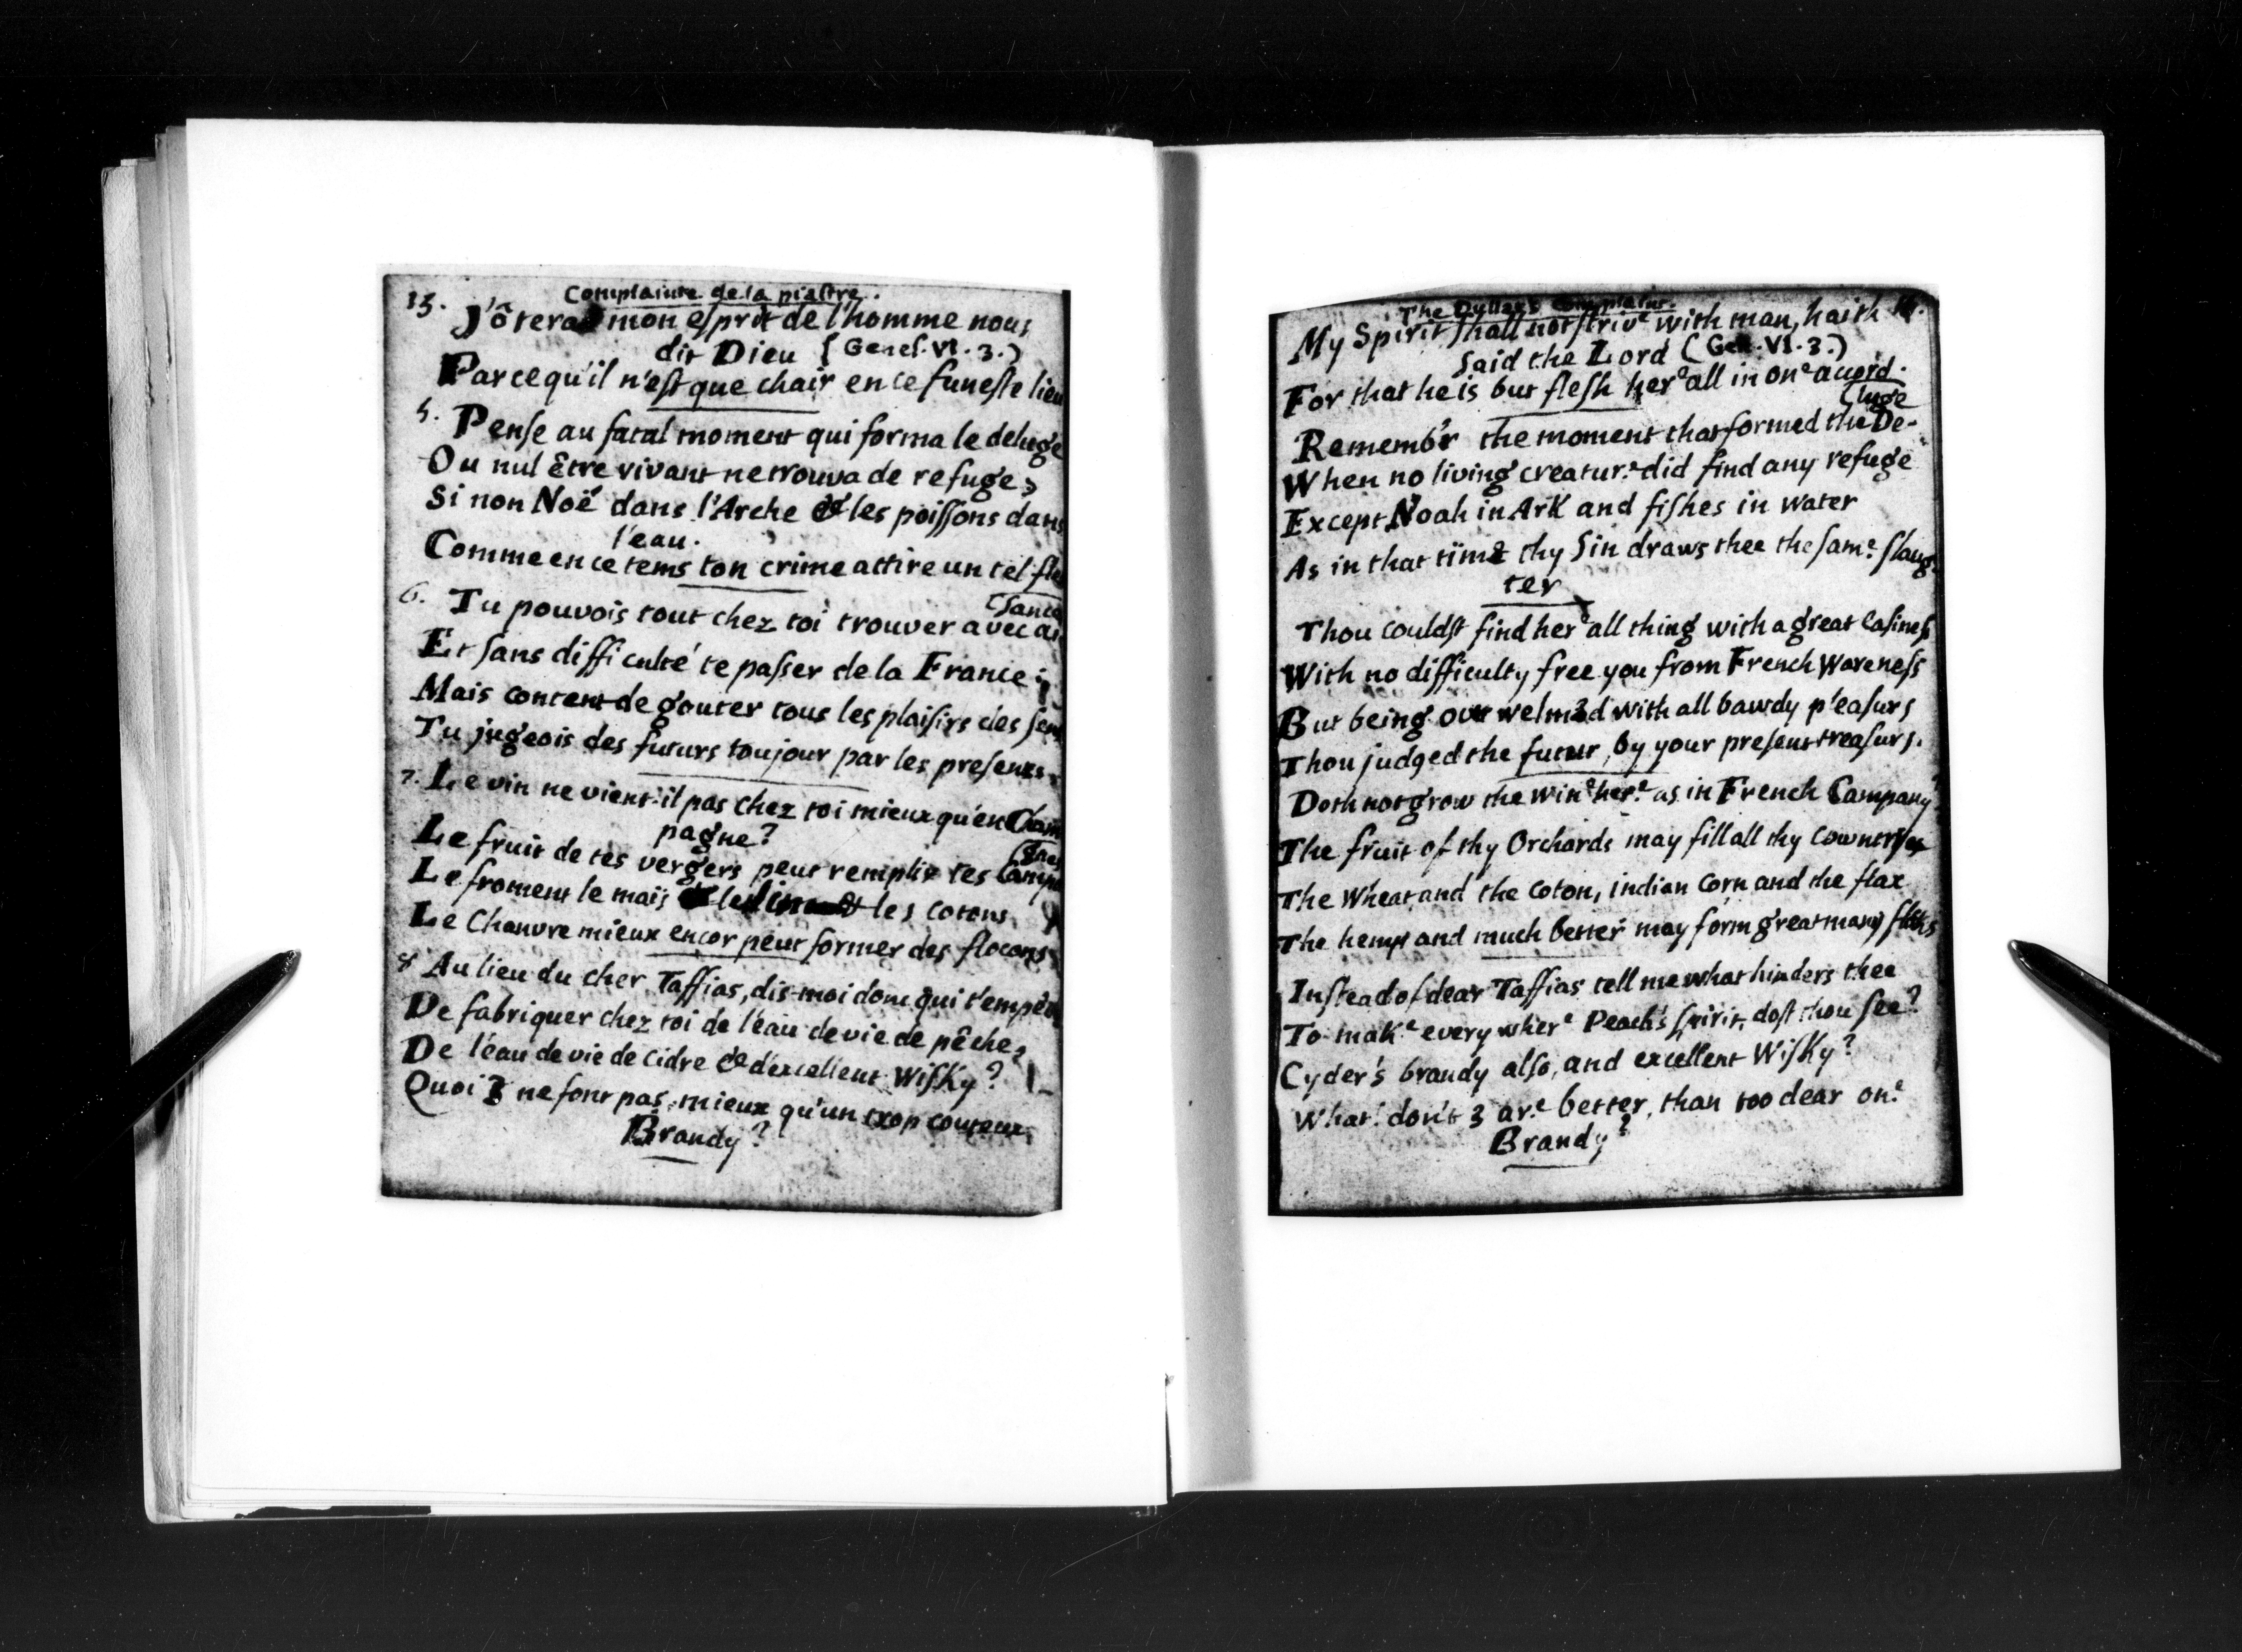 13.
Complainte de la piaſtre.
J'ôterai mon eſprit de l'homme nous
dit Dieu (Geneſ. VI. 3.)
Parcequ'il n'eſt que chair en ce funeſte lieu
5. Penſe au fatal moment qui forma le deluge
Ou nul Être vivant ne trouva de refuge,
Si non Noé dans l'Arche & les poiſſons dans
l'eau.
Comme en ce tems ton crime attire un tel fle
6. Tu pouvois tout chez toi trouver avec ai
(ſance
Et ſans difficulté te paſſer de la France;
Mais content de gouter tous les plaiſirs des ſens
Tu jugeois des futurs toujour par les preſents.
7. Le vin ne vient-il pas chez toi mieux qu'en Cham
pagne?
Le fruit de tes vergers peut remplir tes Campa
(gnes
Le froment le maïs le lin & les cotons
Le Chanvre mieux encor peut former des flocons
8 Au lieu du cher Taffias, dis-moi donc qui t'empêche
De fabriquer chez toi de l'eau de vie de pêche,
De l'éau de vie de Cidre & d'excellent Wiſky?
Quoi 3 ne font pas mieux qu'un trop couteux
Brandy?
The Dyllar's Complaint.
My Spirit ſhall not ſtrive with man, haith 14.
Said the Lord (Gen. VI. 3.)
For that he is but fleſh here all in one acord.
Remembr the moment that formed the De-
(luge
When no living creature did find any refuge
Except Noah in Ark and fiſhes in water
As in that time thy Sin draws thee the ſame ſlaug-
ter
Thou couldſt find here all thing with a great Eaſineſs
With no difficulty free you from French Wareneſs
But being over welm3d with all bawdy pleaſurs
Thou judged the futur by your preſent treaſurs.
Doth not grow the wine here as in French Campany?
The fruit of thy Orchards may fill all thy Cowntryes
The Wheat and the Coton, indian Corn and the flax
The hemp and much better may form great many
Inſtead of dear Taffias tell me what hinders thee
To make every where Peach's ſpirit, doſt thou ſee?
Cyder's brandy alſo, and excellent Wiſky?
What! don't 3 are better, than too dear one
Brandy?